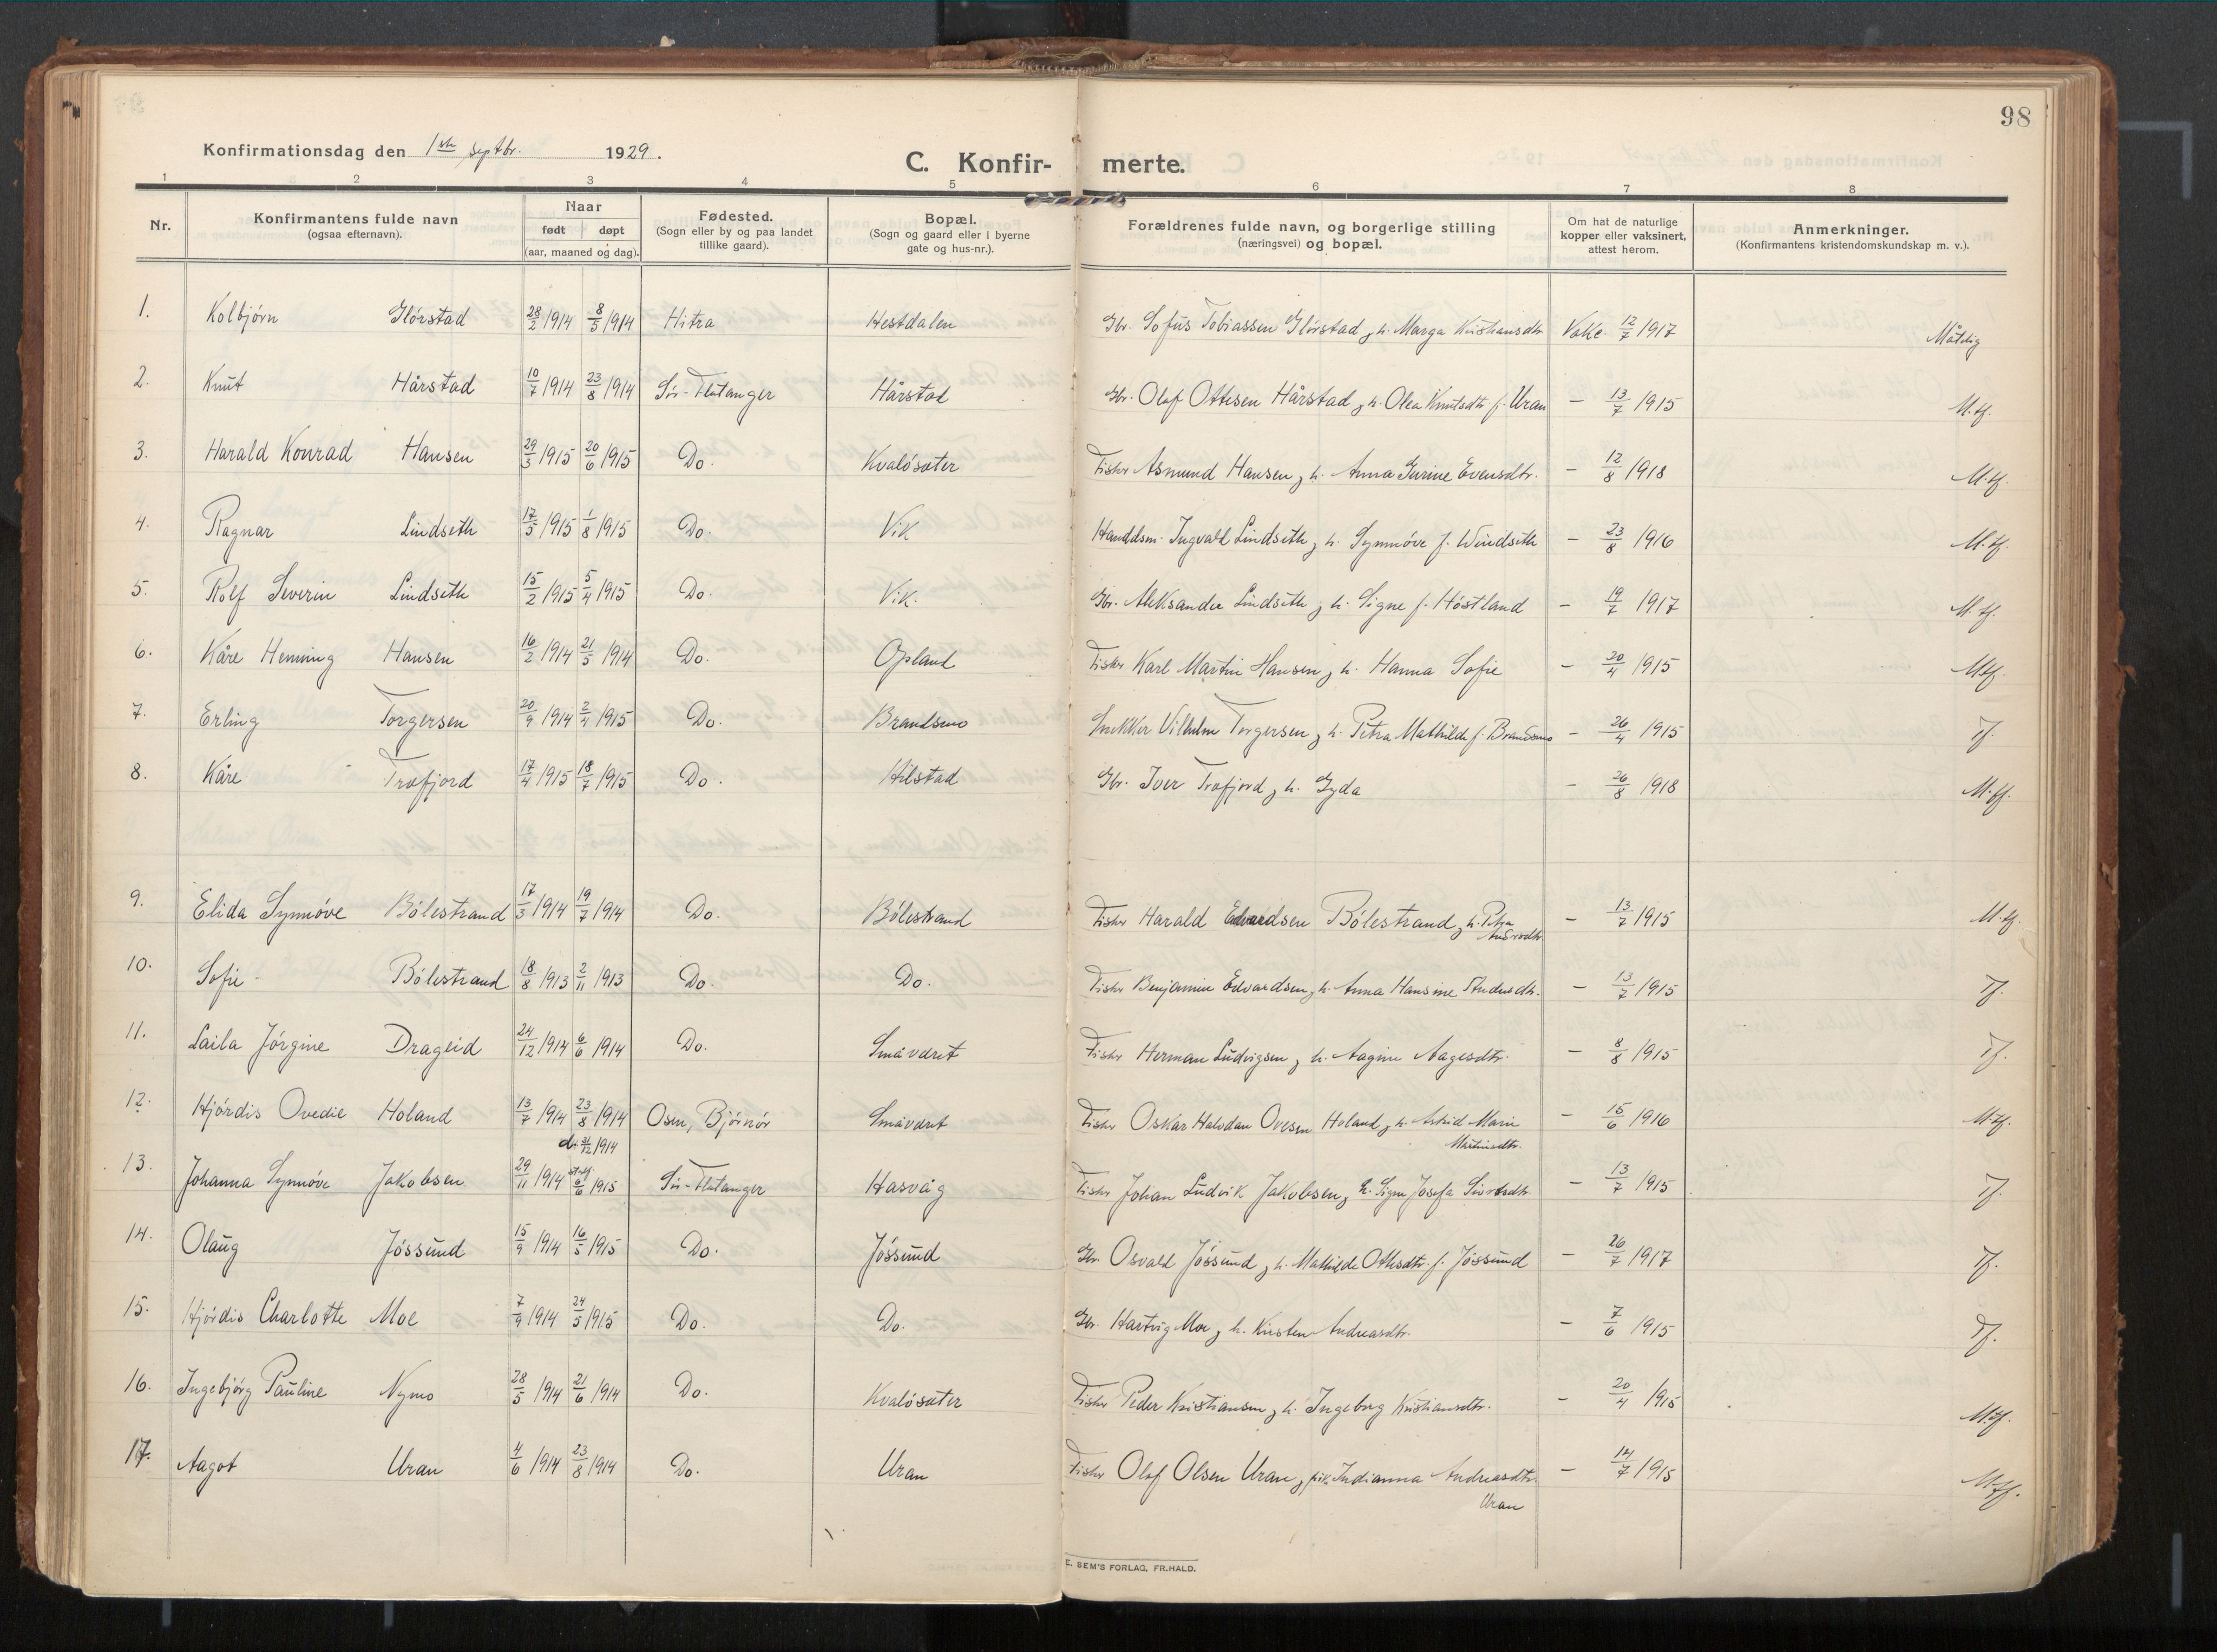 98
Konfirmationsdag den 1ste septbr. 1929.
C. Konfir- merte.
1 2 3 4 5 6 7 8
Nr.
Konfirmantens fulde navn
(ogsaa efternavn).
Naar
født døpt
(aar, maaned og dag).
Fødested.
(Sogn eller by og paa landet
tillike gaard).
Bopæl.
(Sogn og gaard eller i byerne
gate og hus-nr.).
Forældrenes fulde navn, og borgerlige stilling
(næringsvei) og bopæl.
Om hat de naturlige
kopper eller vaksinert,
attest herom.
Anmerkninger.
(Konfirmantens kristendomskundskap m. v.).
1. Kolbjørn Glørstad 28/2 1914 8/5 1914 Hitra Hestdalen Gbr. Sofus Tobiassen Glørstad, h. Marga Kristiansdtr Vakc. 12/7 1917 Måtelig
2. Knut Hårstad 10/7 1914 23/8 1914 Sør-Flatanger Hårstad Gbr. Olaf Ottesen Hårstad, h. Olea Knutsdtr f. Uran - 13/7 1915 M.tf.
3. Harald Konrad Hansen 29/3 1915 20/6 1915 Do. Kvaløsæter Fisker Asmund Hansen, h. Anna Gurine Evensdtr. - 12/8 1918 M.tf.
4. Ragnar Lindseth 17/5 1915 1/8 1915 Do. Vik Handelsm. Ingvald Lindseth, h. Synnøve f. Windseth - 23/8 1916 M.tf.
5. Rolf Severin Lindseth 15/2 1915 5/4 1915 Do. Vik. Gbr. Aleksander Lindseth, h. Signe f. Høstland - 19/7 1917 M.tf.
6. Kåre Henning Hansen 16/2 1914 21/5 1914 Do. Opland Fisker Karl Martin Hansen, h. Hanna Sofie - 20/4 1915 M.tf.
7. Erling Torgersen 20/9 1914 2/4 1915 Do. Brandsmo Snekker Vilhelm Torgersen, h. Petra Mathilde f. Brandsmo - 26/4 1915 Tf.
8. Kåre Træfjord 17/4 1915 18/7 1915 Do. Hilstad Gbr. Iver Træfjord, h. Gyda - 26/8 1918 M.tf.
9. Elida Synnøve Bølestrand 17/3 1914 19/7 1914 Do. Bølestrand Fisker Harald Edvardsen Bølestrand, h. Petra - 13/7 1915 M.tf.
10. Sofie - Bølestrand 18/8 1913 2/11 1913 Do. Do. Fisker Benjamin Edvardsen, h. Anna Hansine - 13/7 1915 Tf.
11. Laila Jørgine Drageid 24/12 1914 6/6 1914 Do. Småværet Fisker Herman Ludvigsen, h. Aagine Aagesdtr. - 8/8 1915 Tf.
12. Hjørdis Ovedie Holand 13/7 1914 23/8 1914 Osen, Bjørnør Småværet Fisker Oskar Halvdan Ovesen Holand, h. Astrid Marie - 15/6 1916 M.tf.
Martinsdtr.
13. Johanna Synnøve Jakobsen 29/11 1914 6/6 1915 Sør-Flatanger Hasvåg Fisker Johan Ludvik Jakobsen, h. Signe Josefa Sivertsdtr - 13/7 1915 Tf.
14. Olaug Jøssund 15/9 1914 16/5 1915 Do. Jøssund Gbr. Osvald Jøssund, h. Mathilde Ottesdtr. f. Jøssund - 26/7 1917 Tf.
15. Hjørdis Charlotte Moe 7/9 1914 24/5 1915 Do. Do. Gbr. Hartvig Moe, h. Kirsten Andreasdtr. - 7/6 1915 Tf.
16. Ingebjørg Pauline Nymo 28/5 1914 21/6 1914 Do. Kvaløsæter Fisker Peder Kristiansen, h. Ingeborg Kristiansdtr. - 20/4 1915 M.tf.
17. Aagot Uran 4/6 1914 23/8 1914 Do. Uran Fisker Olaf Olsen Uran, pik. Indianna Andreasdtr. - 14/7 1915 M.tf.
Uran
E. SEM'S FORLAG, FR.HALD.